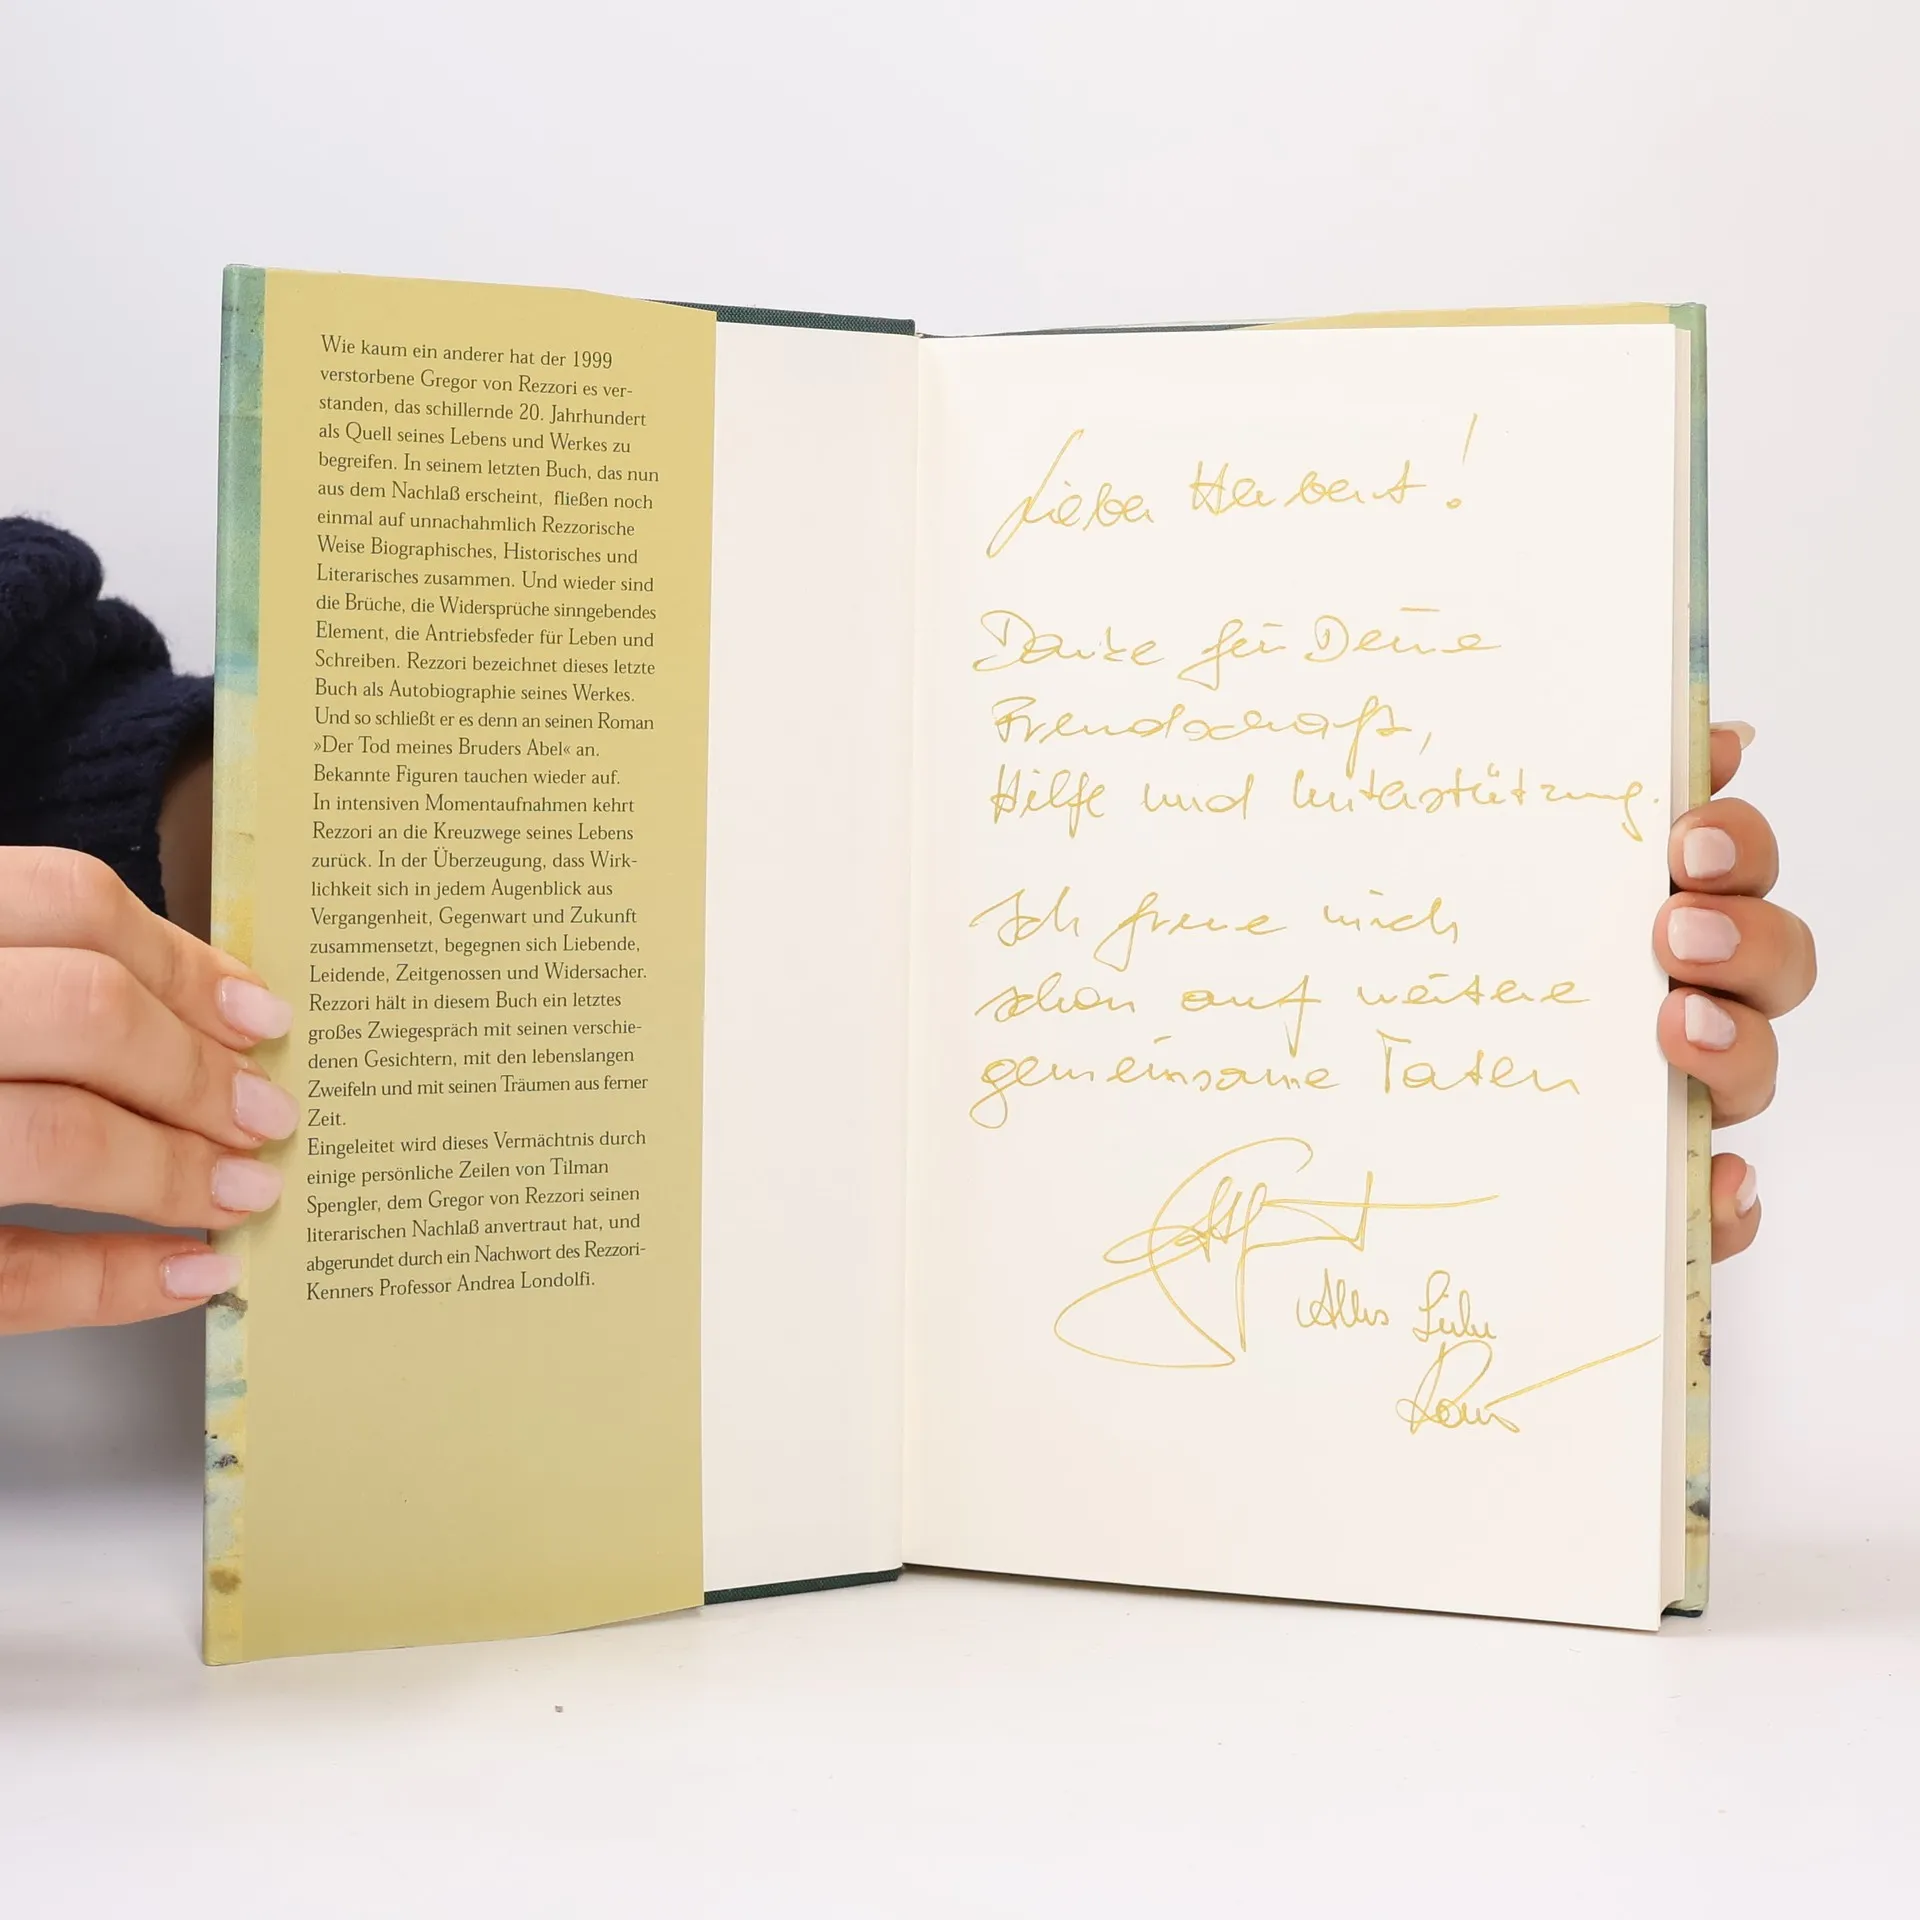 Wie kaum ein anderer hat der 1999
verstorbene Gregor von Rezzori es ver-
standen, das schillernde 20. Jahrhundert
als Quell seines Lebens und Werkes zu
begreifen. In seinem letzten Buch, das nun
aus dem Nachlaß erscheint, fließen noch
einmal auf unnachahmlich Rezzorische
Weise Biographisches, Historisches und
Literarisches zusammen. Und wieder sind
die Brüche, die Widersprüche sinngebendes
Element, die Antriebsfeder für Leben und
Schreiben. Rezzori bezeichnet dieses letzte
Buch als Autobiographie seines Werkes.
Und so schließt er es denn an seinen Roman
»Der Tod meines Bruders Abel« an.
Bekannte Figuren tauchen wieder auf.
In intensiven Momentaufnahmen kehrt
Rezzori an die Kreuzwege seines Lebens
zurück. In der Überzeugung, dass Wirk-
lichkeit sich in jedem Augenblick aus
Vergangenheit, Gegenwart und Zukunft
zusammensetzt, begegnen sich Liebende,
Leidende, Zeitgenossen und Widersacher.
Rezzori hält in diesem Buch ein letztes
großes Zwiegespräch mit seinen verschie-
denen Gesichtern, mit den lebenslangen
Zweifeln und mit seinen Träumen aus ferner
Zeit.
Eingeleitet wird dieses Vermächtnis durch
einige persönliche Zeilen von Tilman
Spengler, dem Gregor von Rezzori seinen
literarischen Nachlaß anvertraut hat, und
abgerundet durch ein Nachwort des Rezzori-
Kenners Professor Andrea Londolfi.
Lieber Herbert!
Danke für Deine
Freundschaft,
Hilfe und Unterstützung.
Ich freue mich
schon auf weitere
gemeinsame Taten
Alles Liebe